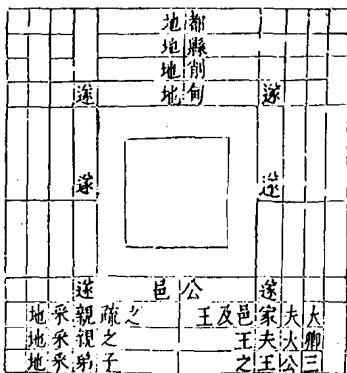 都地
縣地
削地
遂 甸地 遂
遂 遂
遂 公邑 遂
大夫家邑及王之疏親采地
卿大夫王之視采地
三公王之子弟采地